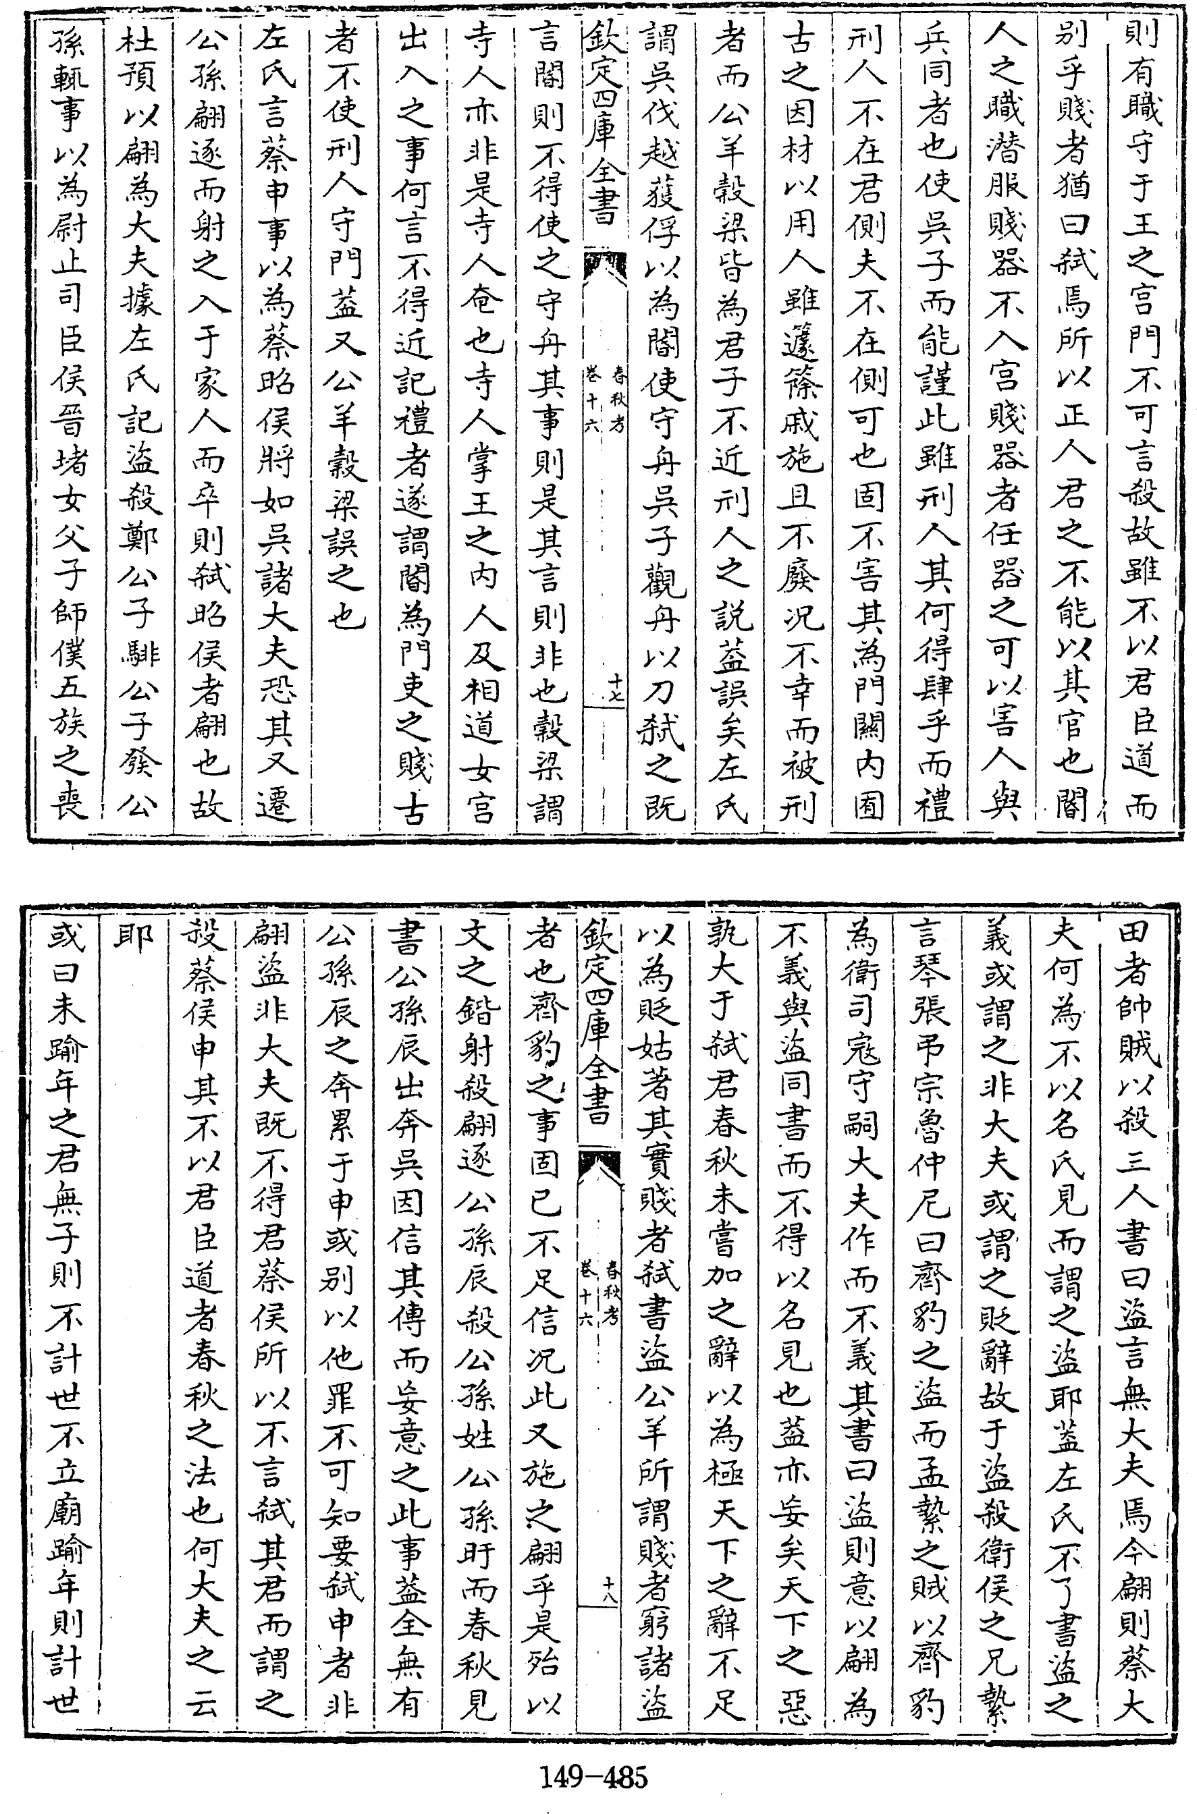 則有職守于王之宫門不可言殺故雖不以君臣道而
别乎賤者猶曰弑焉所以正人君之不能以其官也閽
人之職潜服賤器不入宫賤器者任器之可以害人與
兵同者也使吳子而能謹此雖刑人其何得肆乎而禮
刑人不在君側夫不在側可也固不害其為門關内囿
古之因材以用人雖籧篨戚施且不廢况不幸而被刑
者而公羊榖梁皆為君子不近刑人之説葢誤矣左氏
謂吳伐越獲俘以為閽使守舟吳子觀舟以刀弑之既
欽定四庫全書
春秋考
卷十六
十七
言閽則不得使之守舟其事則是其言則非也榖梁謂
寺人亦非是寺人奄也寺人掌王之内人及相道女宫
出入之事何言不得近記禮者遂謂閽為門吏之賤古
者不使刑人守門葢又公羊榖梁誤之也
左氏言蔡申事以為蔡昭侯將如吳諸大夫恐其又遷
公孫翩逐而射之入于家人而卒則弑昭侯者翩也故
杜預以翩為大夫據左氏記盜殺鄭公子騑公子發公
孫輒事以為尉止司臣侯晉堵女父子師僕五族之喪
田者帥賊以殺三人書曰盜言無大夫焉今翩則蔡大
夫何為不以名氏見而謂之盜耶葢左氏不了書盜之
義或謂之非大夫或謂之貶辭故于盜殺衛侯之兄縶
言琴張弔宗魯仲尼曰齊豹之盜而孟縶之賊以齊豹
為衛司寇守嗣大夫作而不義其書曰盜則意以翩為
不義與盜同書而不得以名見也葢亦妄矣天下之惡
孰大于弑君春秋未嘗加之辭以為極天下之辭不足
以為貶姑著其實賤者弑書盜公羊所謂賤者窮諸盜
欽定四庫全書
春秋考
卷十六
十八
者也齊豹之事固已不足信况此又施之翩乎是殆以
文之鍇射殺翩逐公孫辰殺公孫姓公孫盱而春秋見
書公孫辰出奔吳因信其傳而妄意之此事葢全無有
公孫辰之奔累于申或别以他罪不可知要弑申者非
翩盜非大夫既不得君蔡侯所以不言弑其君而謂之
殺蔡侯申其不以君臣道者春秋之法也何大夫之云
耶
或曰未踰年之君無子則不計世不立廟踰年則計世
149-485